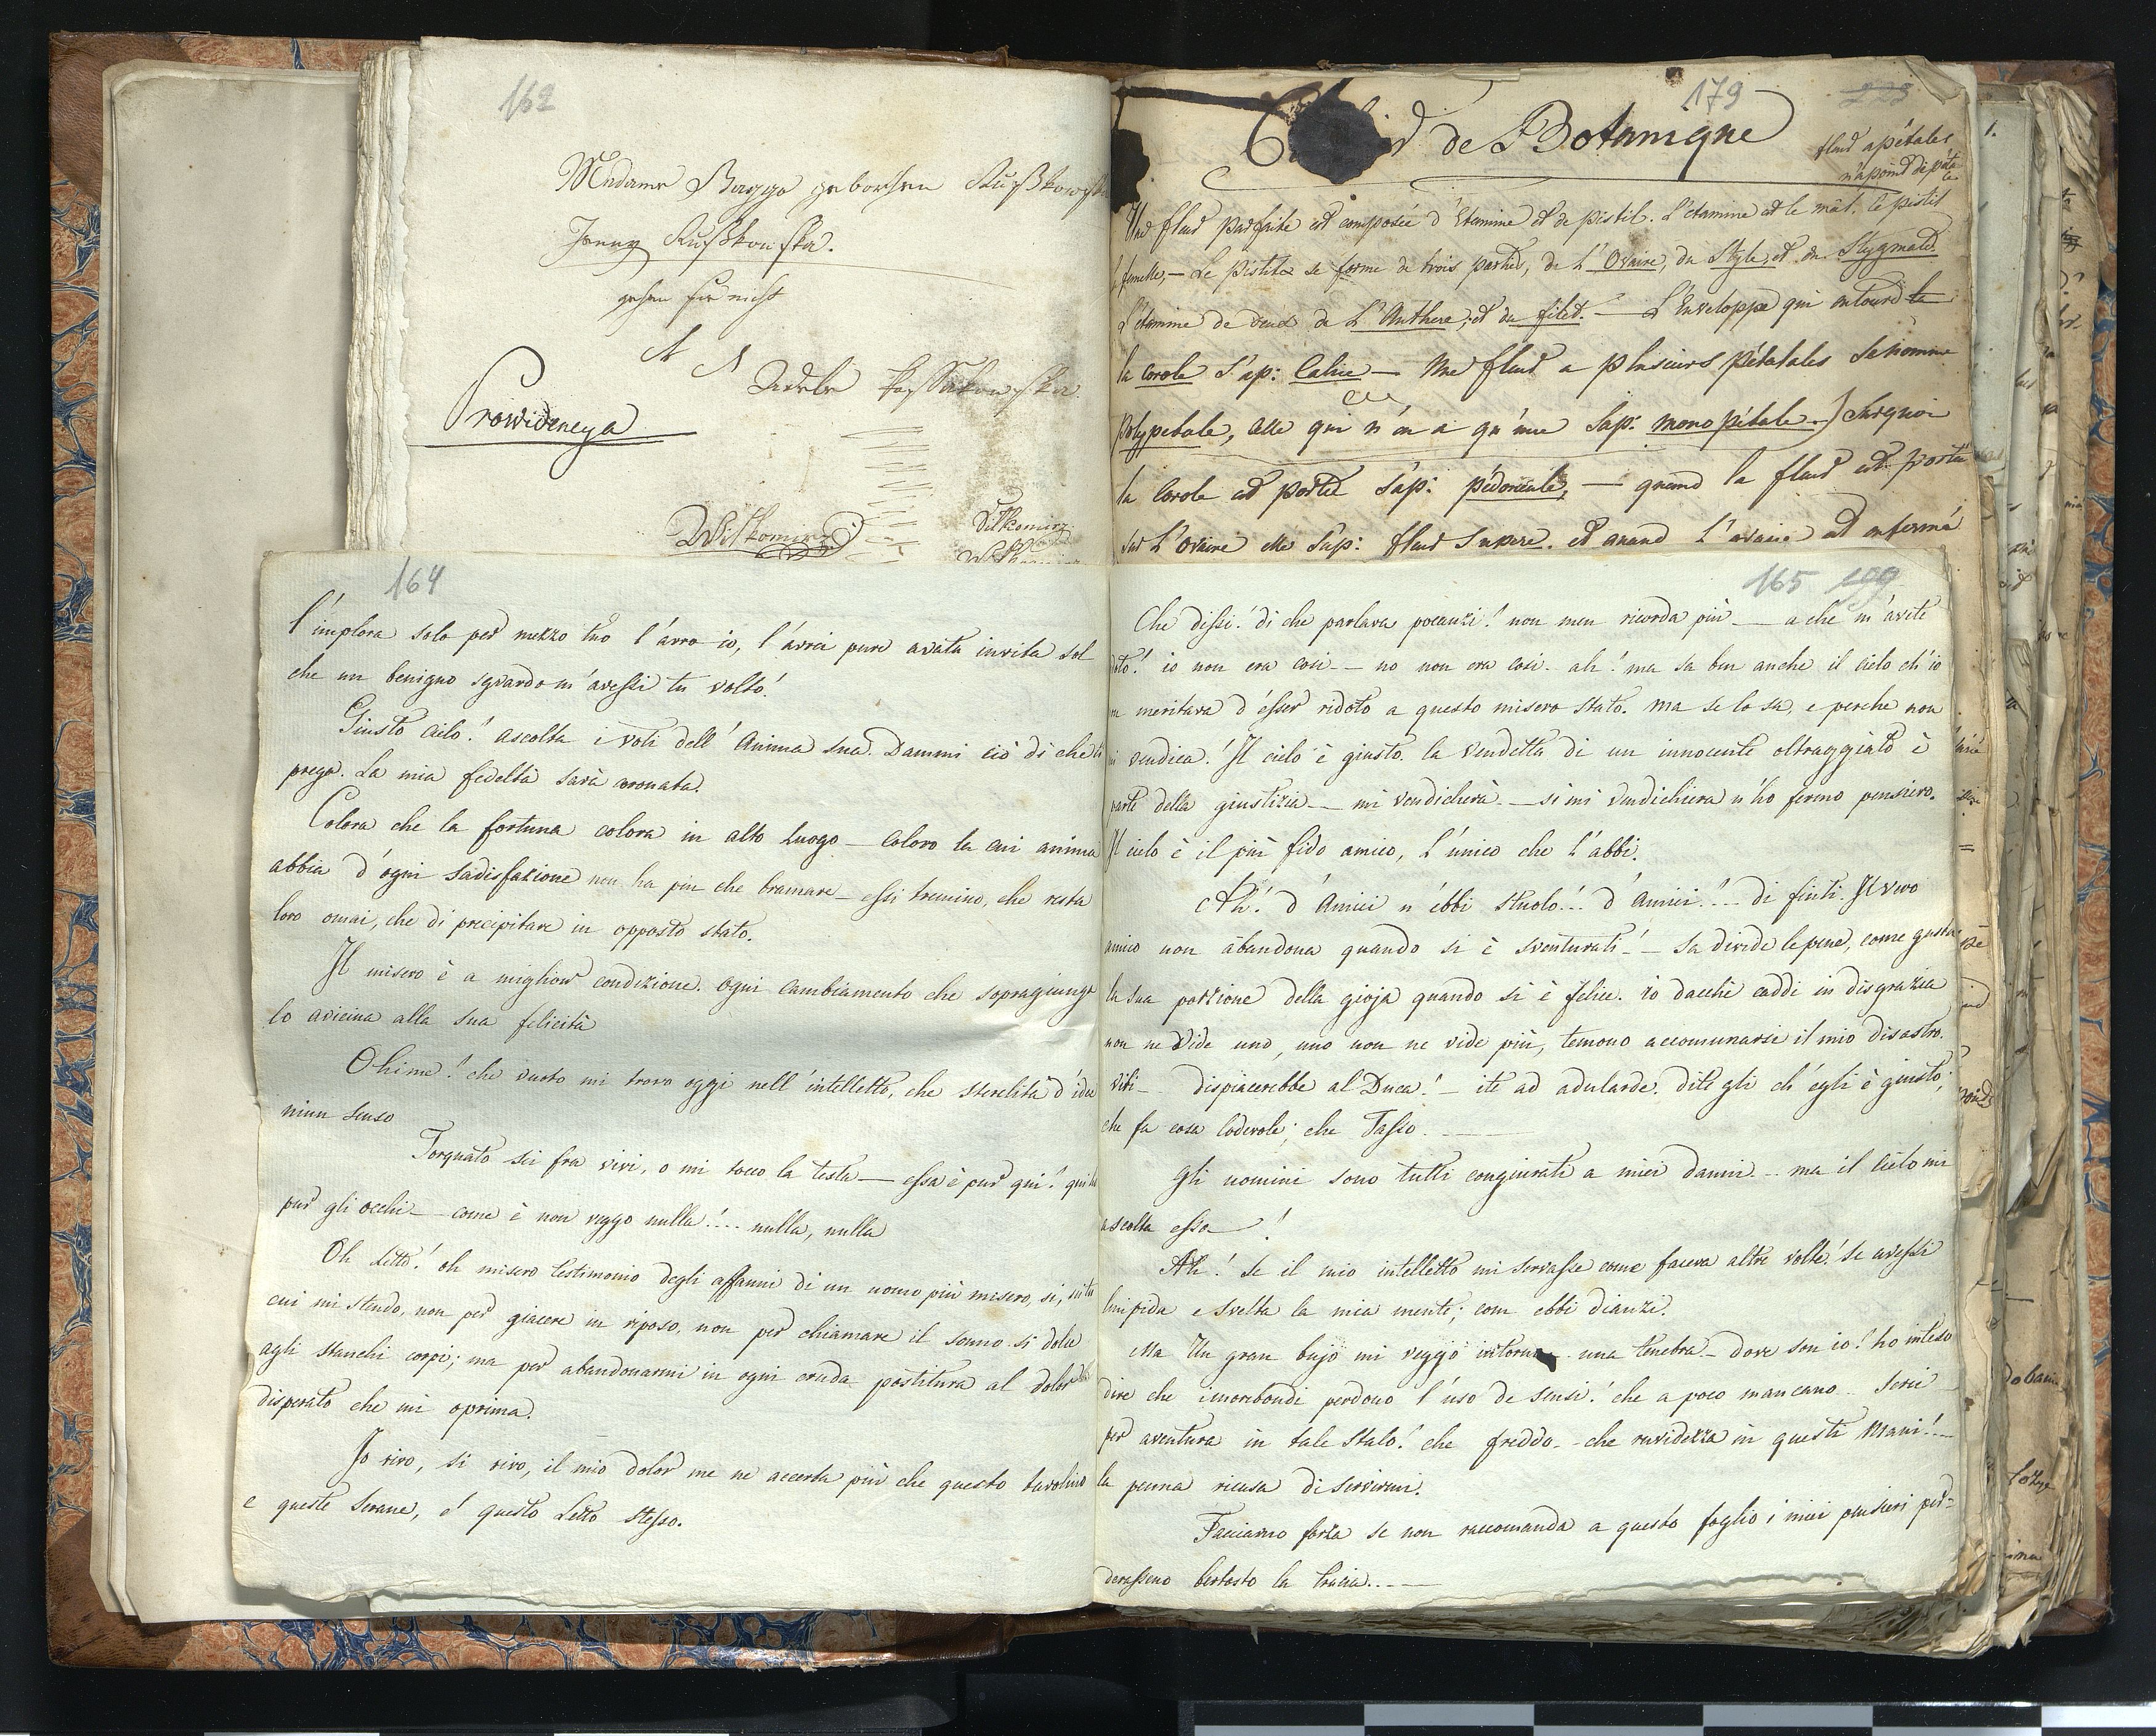 162
Madame Bagge geborhen Rußkowska
Jenny Rußkowska.
gehen sie nicht
A A
Adele Kossakowska
Prowidencya
Wilkomirz
Wilkomirz
179
de Botanique
fleur apétales
n'a point de
Une fleur parfaite est composée d'Etamine et de pistil. L'etamine est le mâl. Le pistil
la femelle, — Le Pistile se forme de trois parties, de L'Ovaire, du Style, et du Stygmate
L'étamine de deux de L'Anthere, et du filet. — L'Enveloppe qui entoure la
la corole S'ap: Calice — Une fleur a plusieurs pétatales se nomme
polypetale, celle qui n'en a qu'une S'ap: monopétale.) Surquoi
la Corole est portée S'ap: pédoncule, — quand la fleur est portée
sur L'Ovaire elle S'ap: fleur Supere. et quand l'ovaire est enfermé
164
l'implora solo per mezzo tuo l'avro io, l'avrei pure avuta in vita sol
che un benigno sguardo m'avessi tu volto!
Giusto cielo! ascolta i voti dell'Anima sua. Dammi ciò di che ti
prega. La mia fedeltà sarà coronata.
Colora che la fortuna colora in alto luogo — Coloro la cui anima
abbia d'ogni sadisfazione non ha piu che bramare — essi tremino, che resta
loro omai, che di precipitare in opposto stato.
Il misero è a miglior condizione. ogni cambiamento che sopragiunge
lo avicina alla sua felicità
Ohime! che vuoto mi trovo oggi nell'intelletto, che sterelità d'idee
niun senso
Torquato sei fra vivi, o mi tocco la testa — essa è pur qui! qui
pur gli occhi — come è non veggo nulla!.... nulla, nulla
Oh Letto! oh misero testimonio degli affanni di un uomo più misero, si, su tu
cui mi stendo, non per giacere in riposo, non per chiamare il sonno si dolce
agli stanchi corpi; ma per abandonarmi in ogni cruda postitura al dolor
disperato che mi oprima.
Io vivo, si vivo, il mio dolor me ne accerta più che questo tavolino
e queste Serane, e questo Letto stesso.
165 199
Che dissi! di che parlava pocanzi! non men ricorda più — a che m'avete
doto! io non era cosi — no non era cosi. ah! ma sa ben anche il cielo ch'io
meritava d'esser ridoto a questo misero stato. ma se lo sa, e perche non
mi vendica! Il cielo è giusto. la vendetta di un innocente oltraggiato è
parte della giustizia — mi vendicherà. — si mi vendichiera n'ho fermo pensiero.
Il cielo è il più fido amico, L'unico che l'abbi.
Ah! d'Amici n'ebbi stuolo!.. d'Amici!.. di finti. Il vero
amico non abandona quando si è sventurati! — sa divide le pene, come gusta
la sua porzione della gioja quando si è felice. io dacchè caddi in disgrazia
non ne vide uno, uno non ne vide più, temono accomunarsi il mio disastro.
vili — dispiacerebbe al Duca! — ite ad adularde. dite gli ch'egli è giusto;
che fa cosa lodevole; che Tasso. ——
Gli uomini sono tutti congiurati a miei danni — ma il Cielo mi
ascolta esso — !
Ah! se il mio intelletto mi servasse come faceva altre volte! se avessi
limpida e svelta la mia mente; com ebbi dianzi.
Ma Un gran bujo mi veggo intorno — una tenebra — dove son io! ho inteso
dire che i moribondi perdono l'uso de sensi! che a poco mancano — serei
per aventura in tale stato! che freddo — che ruvidezza in questi Mani!—
la penna ricusa di servirmi.
Facciamo forza se non raccomanda a questo foglio i miei pensieri per=
derasseno bentosto la traccia....—